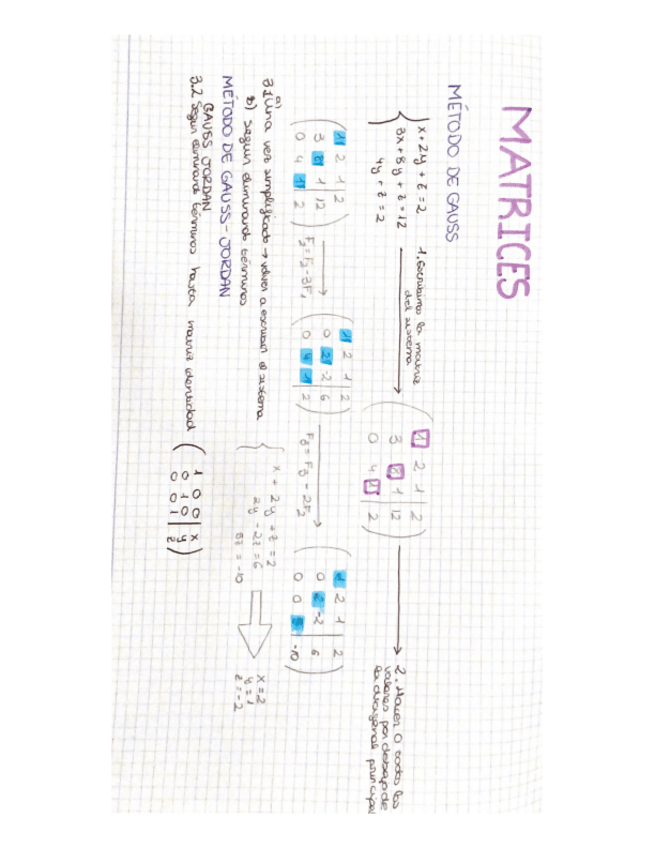 MATRICES
MÉTODO DE GAUSS
x + 2y + z = 2
3x + 8y + z = 12
4y + z = 2
1. Escribimos la matriz
del sistema
1 2 1 | 2
3 8 1 | 12
0 4 1 | 2
2. Hacer 0 todos los
valores por debajo de
la diagonal principal
1 2 1 | 2
3 8 1 | 12
0 4 1 | 2
F₂=F₂-3F₁
1 2 1 | 2
0 2 -2 | 6
0 4 1 | 2
F₃ = F₃ - 2F₂
1 2 1 | 2
0 2 -2 | 6
0 0 5 | -10
a)
3.1 una vez simplificado → volver a escribir el sistema
x + 2y + z = 2
2y - 2z = 6
5z = -10
x = 2
y = 1
z = -2
b) Seguir eliminando términos
MÉTODO DE GAUSS-JORDAN
GAUSS JORDAN
3.2 Seguir eliminando términos hasta matriz identidad
1 0 0 | x
0 1 0 | y
0 0 1 | z